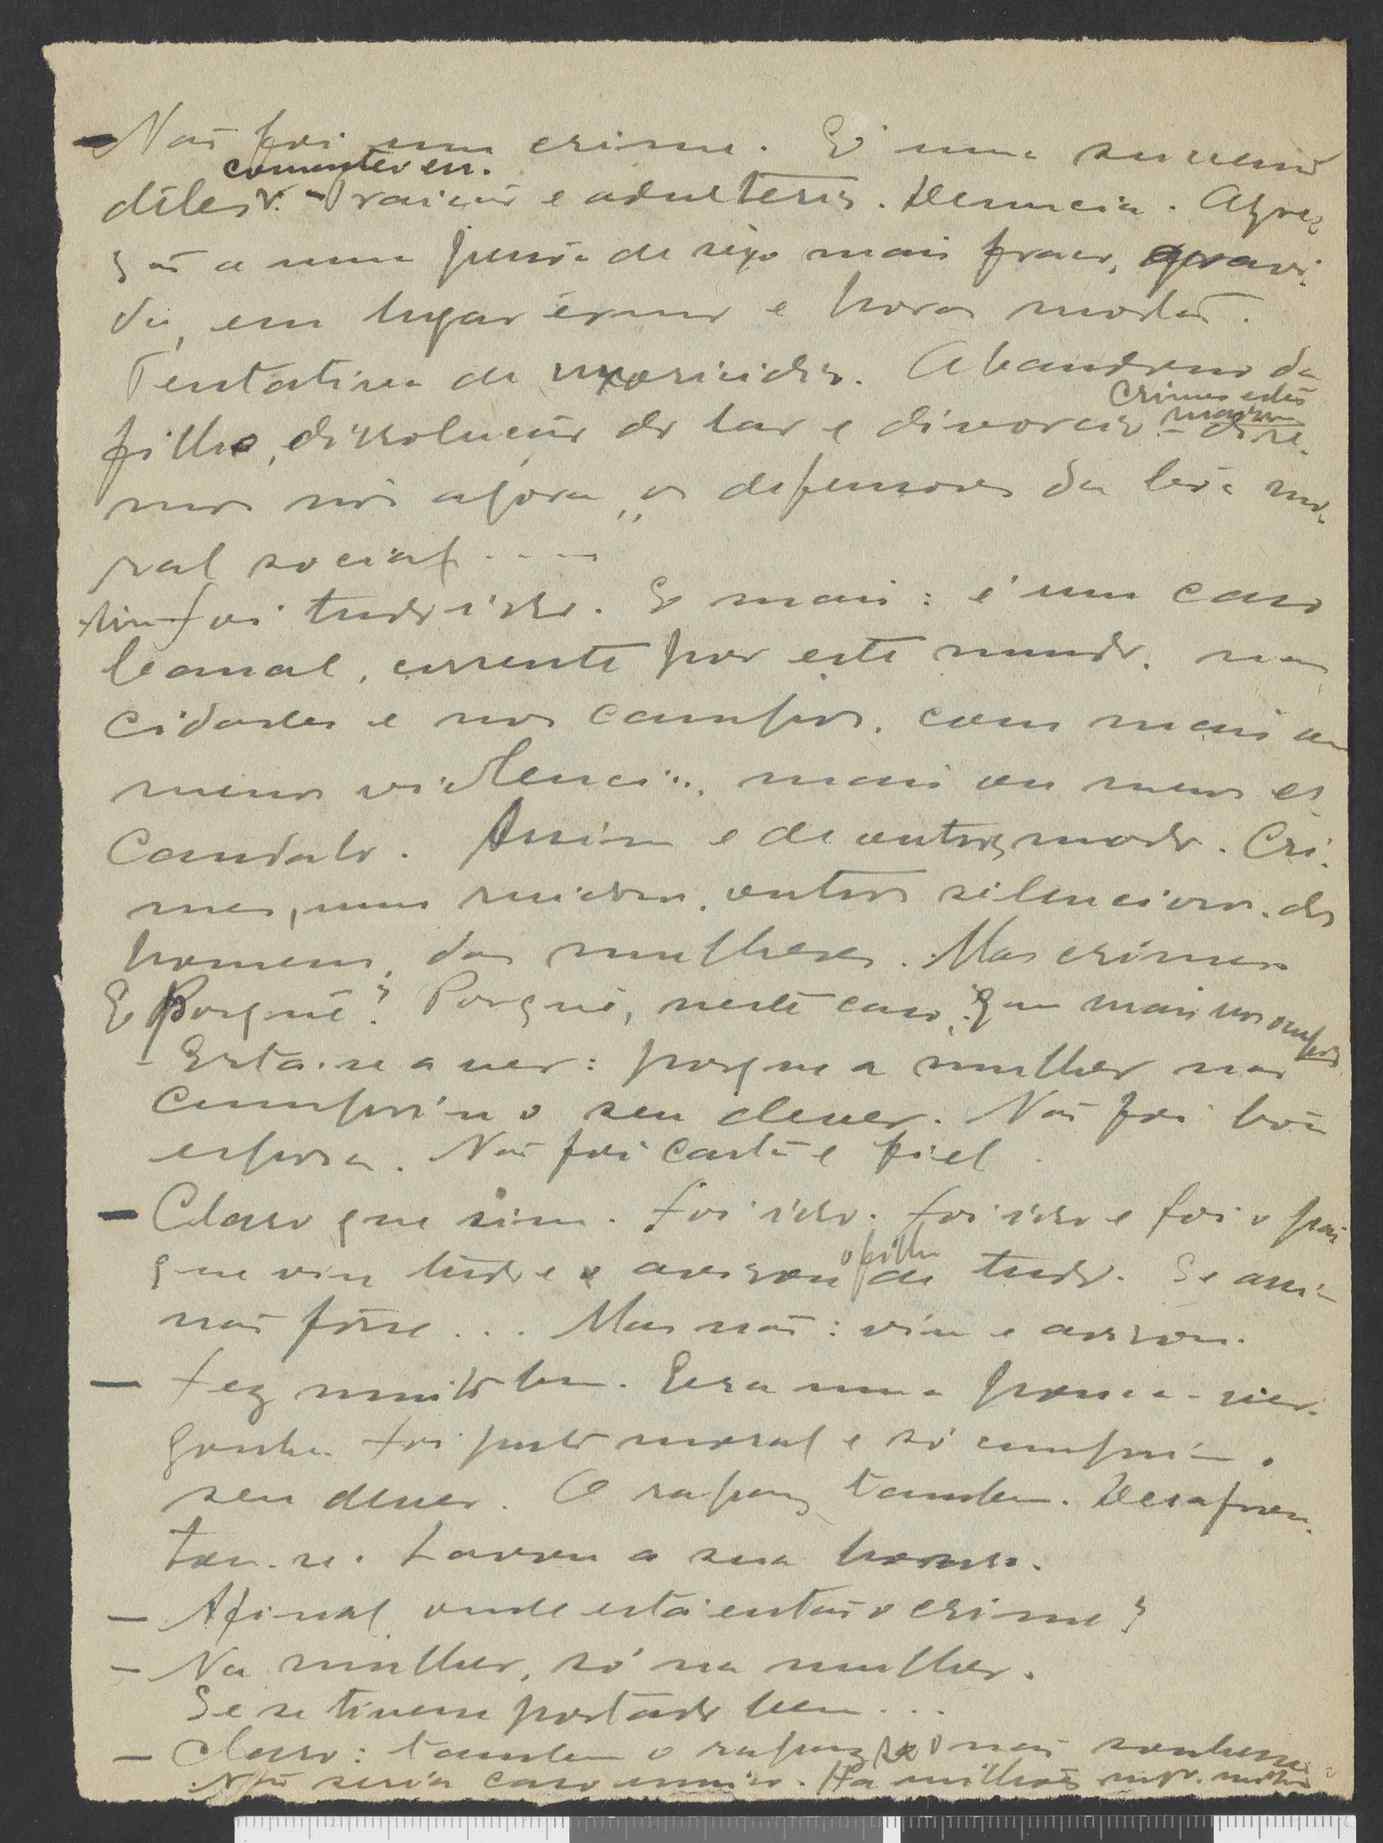 — Não foi um crime. É uma sucessão
comentou eu.
deles. — Traição e adultério. Denuncia. Agres
são a uma pessôa de sexo mais fraco, gravi-
da, em lugar êrmo e horas mortas.
Tentativa de uxoricidio. Abandono da
Crimes estes
filho, dissolução do lar e divorcio. — dire-
mos nós agora, os defensores da bôa mo-
ral social ....
Sim foi tudo isso. E mais: é um caso
banal, corrente por este mundo. nas
cidades e nos campos. com mais ou
menos violencia, mais ou menos es
candalo. Assim e de outro modo. Cri-
mes, uns ruidosos, outros silenciosos. dos
homens, das mulheres. Mas crimes
E Porquê? Porquê, neste caso,
— Está-se a ver: porque a mulher não
cumpriu o seu dever. Não foi bôa
esposa. Não foi casta e fiel.
— Claro que sim. Foi isso. Foi isso e foi o pai
o filho
que viu tudo e avisou de tudo. Se assim
não fôsse... Mas não: viu e avisou.
— Fez muito bem. Era uma pouca-ver-
gonha. Foi justo moral e só cumpriu o
seu dever. O rapaz tambem. Desafron-
tou-se. Lavou a sua honra.
— Afinal onde está então o crime?
— Na mulher, só na mulher.
Se se tivesse portado bem...
— Claro: tambem o rapaz não soubesse
Não seria caso unico. Ha milhões